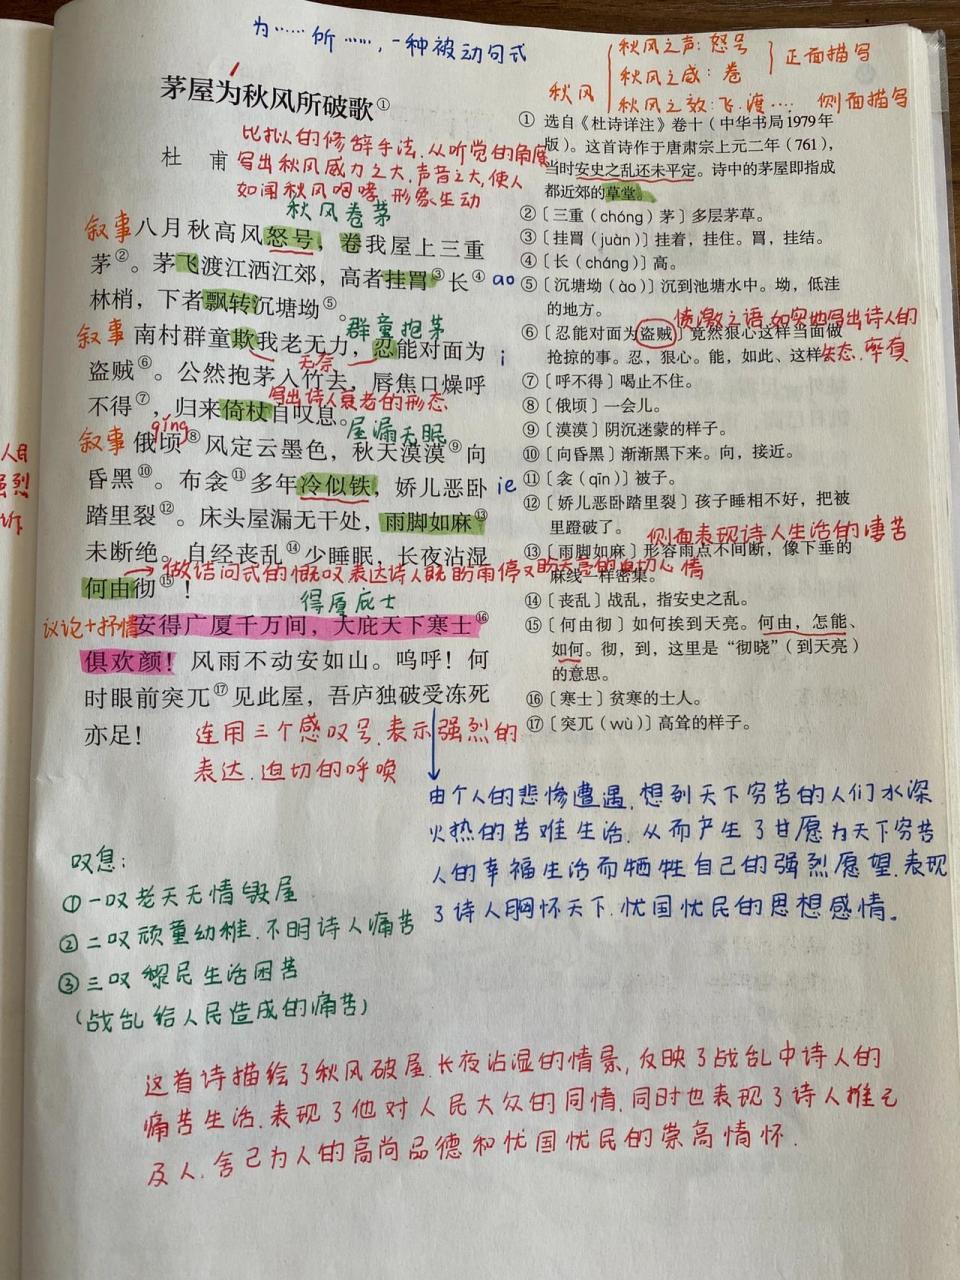 为……所……,一种被动句式
秋风之声:怒号
秋风之威:卷
正面描写
秋风
秋风之效:飞.渡…. 侧面描写
茅屋为秋风所破歌①
杜 甫
比拟的修辞手法.从听觉的角度
写出秋风威力之大.声音之大,使人
如闻秋风咆哮,形象生动
秋风卷茅
叙事
八月秋高风怒号,卷我屋上三重
茅②。茅飞渡江洒江郊,高者挂罥③长④
ao
林梢,下者飘转沉塘坳⑤。
群童抱茅
叙事
南村群童欺我老无力,忍能对面为
i
无奈
盗贼⑥。公然抱茅入竹去,唇焦口燥呼
写出诗人衰老的形态
不得⑦,归来倚杖自叹息。
qǐng
屋漏无眠
叙事
俄顷⑧风定云墨色,秋天漠漠⑨向
昏黑⑩。布衾⑪多年冷似铁,娇儿恶卧
ie
踏里裂⑫。床头屋漏无干处,雨脚如麻⑬
未断绝。自经丧乱⑭少睡眠,长夜沾湿
做诘问式的慨叹表达诗人既盼雨停又盼天亮的迫切心情
何由彻⑮!
得厦庇士
议论+抒情
安得广厦千万间,大庇天下寒士⑯
俱欢颜!风雨不动安如山。呜呼!何
时眼前突兀⑰见此屋,吾庐独破受冻死
亦足!
连用三个感叹号.表示强烈的
表达.迫切的呼唤
① 选自《杜诗详注》卷十(中华书局1979年
版)。这首诗作于唐肃宗上元二年(761),
当时安史之乱还未平定。诗中的茅屋即指成
都近郊的草堂。
②〔三重(chóng)茅〕多层茅草。
③〔挂罥(juàn)〕挂着,挂住。罥,挂结。
④〔长(cháng)〕高。
⑤〔沉塘坳(ào)〕沉到池塘水中。坳,低洼
的地方。
愤激之语.如实地写出诗人的
⑥〔忍能对面为盗贼〕竟然狠心这样当面做
抢掠的事。忍,狠心。能,如此、这样。
失态.率真
⑦〔呼不得〕喝止不住。
⑧〔俄顷〕一会儿。
⑨〔漠漠〕阴沉迷蒙的样子。
⑩〔向昏黑〕渐渐黑下来。向,接近。
⑪〔衾(qīn)〕被子。
⑫〔娇儿恶卧踏里裂〕孩子睡相不好,把被
里蹬破了。
侧面表现诗人生活的凄苦
⑬〔雨脚如麻〕形容雨点不间断,像下垂的
麻线一样密集。
⑭〔丧乱〕战乱,指安史之乱。
⑮〔何由彻〕如何挨到天亮。何由,怎能、
如何。彻,到,这里是“彻晓”(到天亮)
的意思。
⑯〔寒士〕贫寒的士人。
⑰〔突兀(wù)〕高耸的样子。
由个人的悲惨遭遇.想到天下穷苦的人们水深
火热的苦难生活.从而产生了甘愿为天下穷苦
人的幸福生活而牺牲自己的强烈愿望.表现
了诗人胸怀天下.忧国忧民的思想感情。
叹息:
①一叹老天无情毁屋
②二叹顽童幼稚.不明诗人痛苦
③三叹黎民生活困苦
(战乱给人民造成的痛苦)
这首诗描绘了秋风破屋.长夜沾湿的情景,反映了战乱中诗人的
痛苦生活.表现了他对人民大众的同情.同时也表现了诗人推己
及人.舍己为人的高尚品德和忧国忧民的崇高情怀.